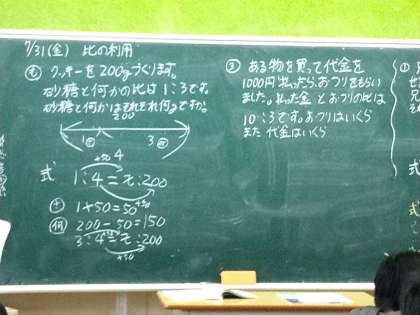 7/31(金) 比の利用
も クッキーを200gづくります。
砂糖と何かの比は1:3です。
砂糖と何かはそれぞれ何gですか。
200
1 3
×50 4
式 1:4=x:200
×50
1×50=50
何 200-50=150
3:4=x:200
×50
③ ある物を買って代金を
1000円払ったら、おつりをもらい
ました。払った金とおつりの比は
10:3です。おつりはいくら
また 代金はいくら
式
①
式